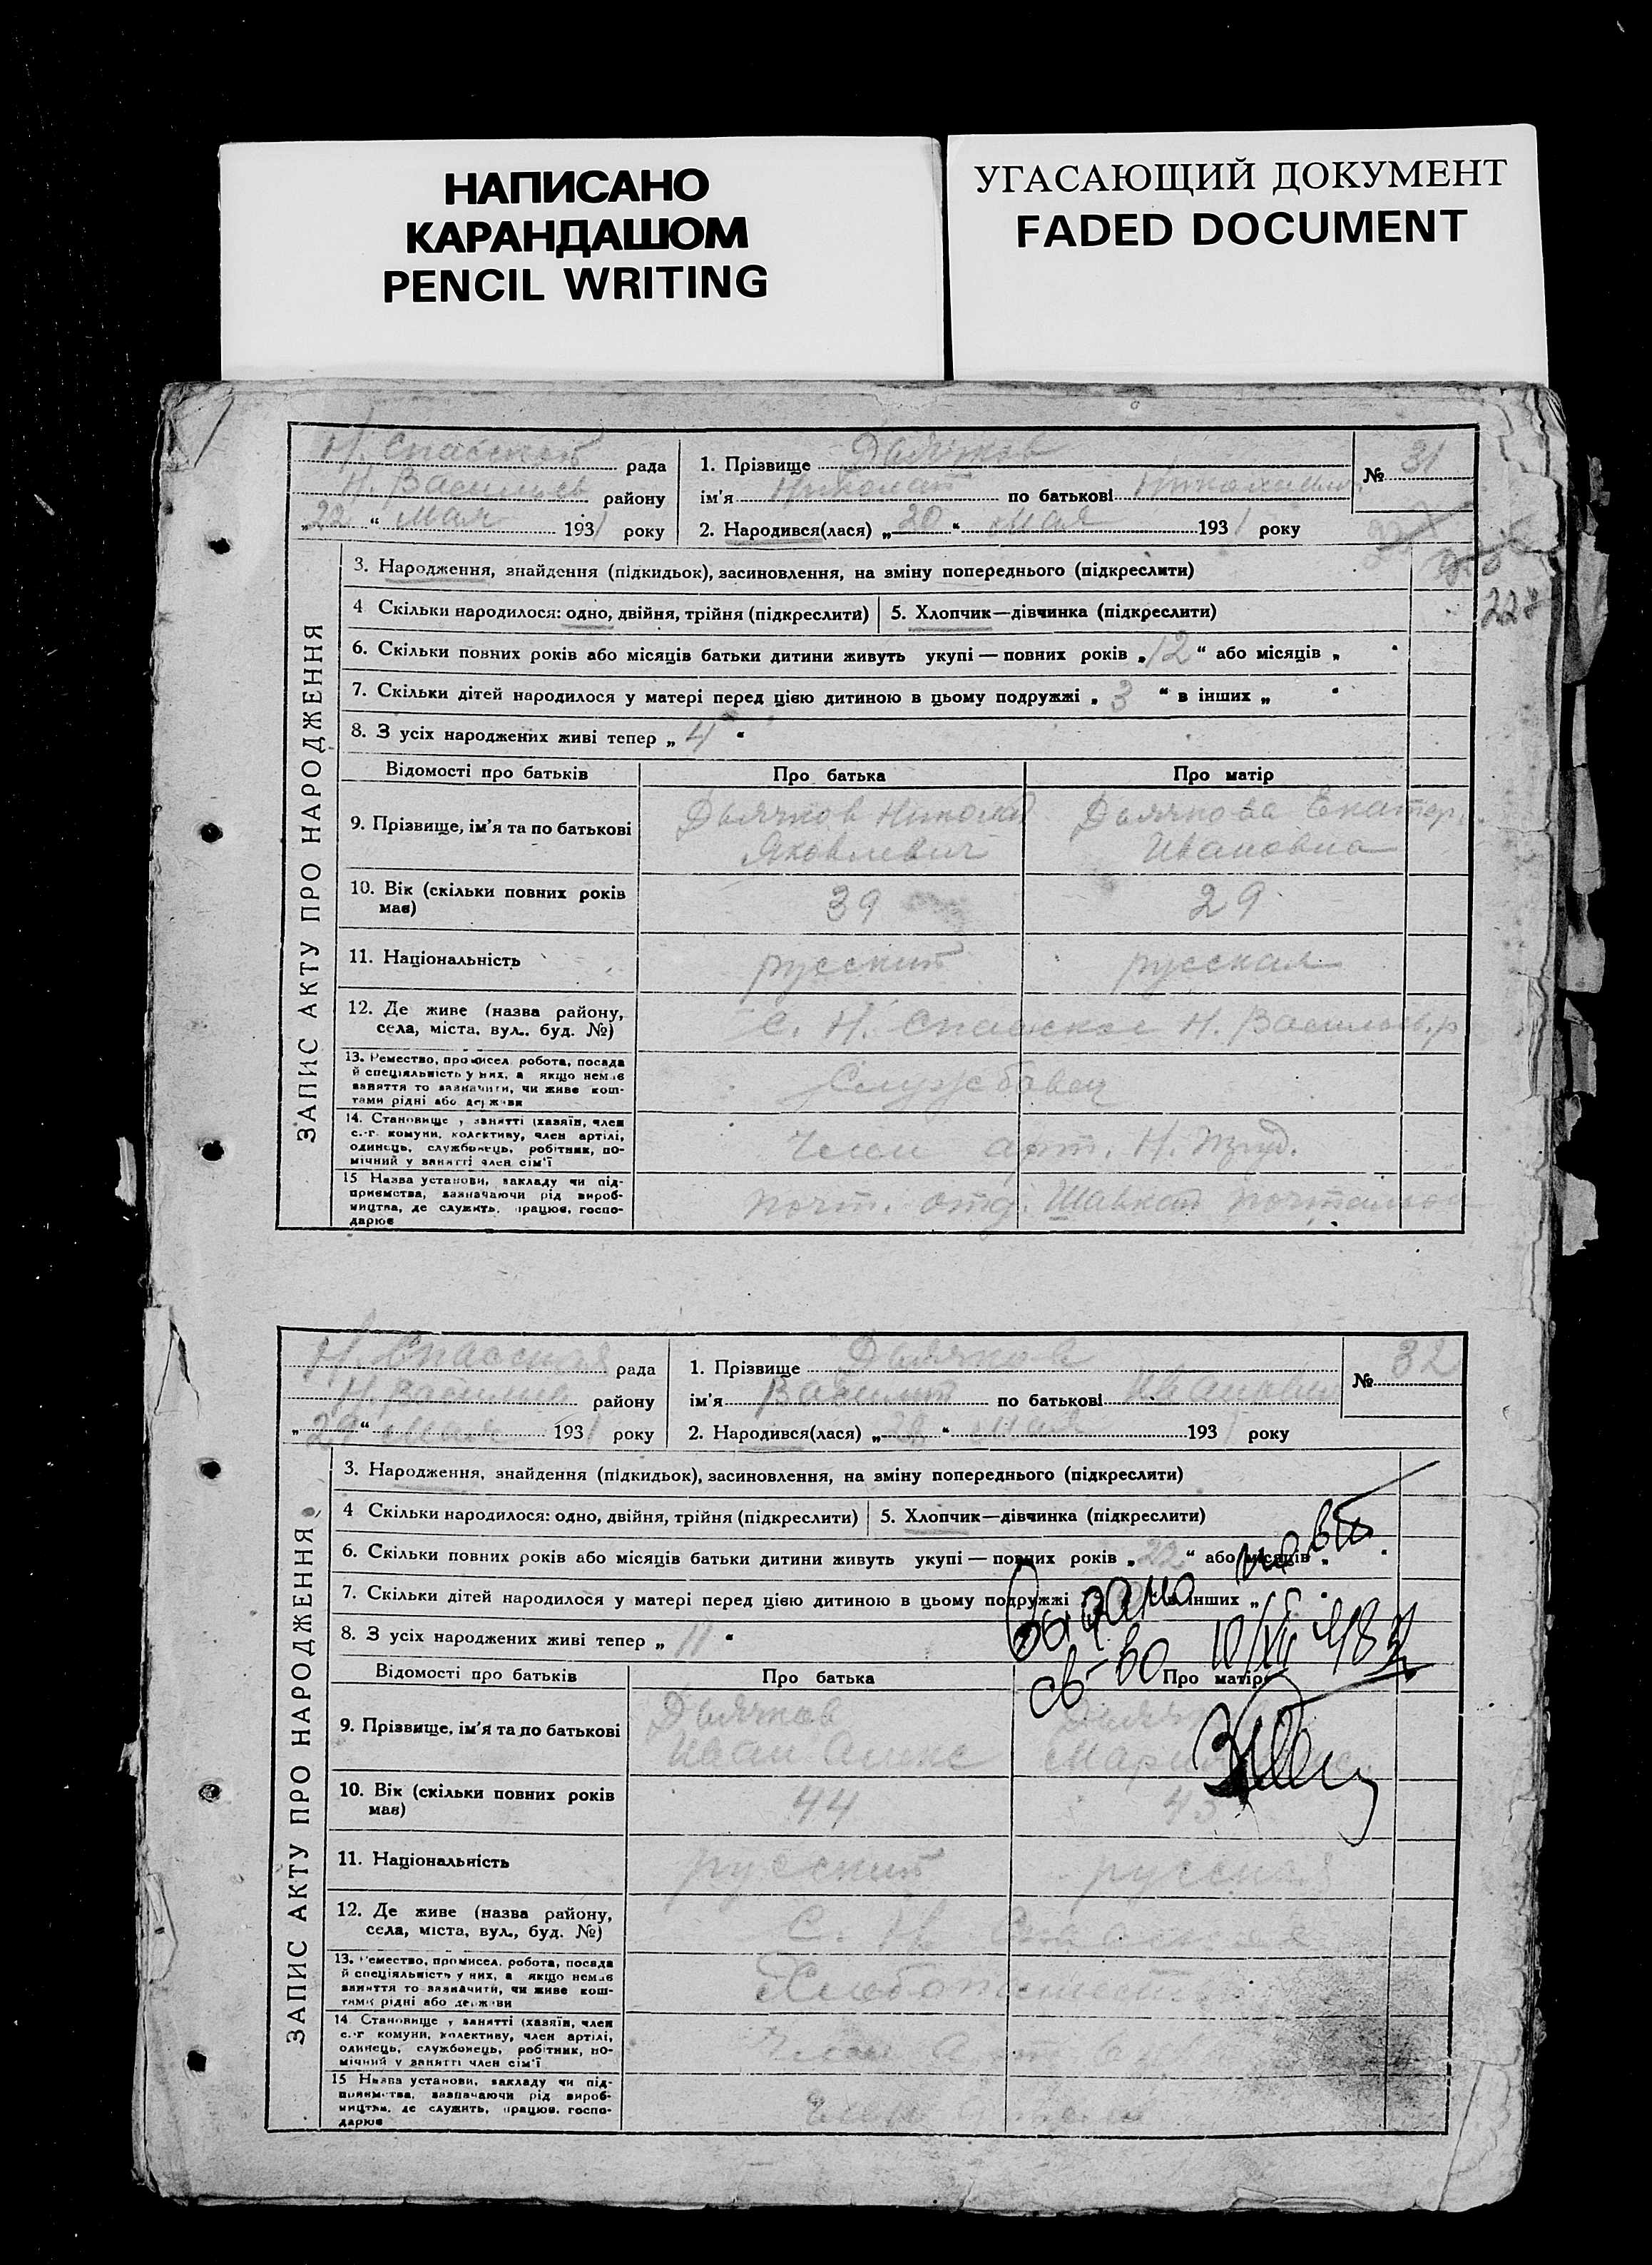 НАПИСАНО
КАРАНДАШОМ
PENCIL WRITING
УГАСАЮЩИЙ ДОКУМЕНТ
FADED DOCUMENT
Н. Спасской рада
Н. Васильев району
„22“ мая 1931 року
1. Прізвище Дьячков
ім'я Николай по батькові Николаевич
2. Народився(лася) „20“ мая 1931 року
№ 31
228
ЗАПИС АКТУ ПРО НАРОДЖЕННЯ
3. Народження, знайдення (підкидьок), засиновлення, на зміну попереднього (підкреслити)
4 Скільки народилося: одно, двійня, трійня (підкреслити) 5. Хлопчик—дівчинка (підкреслити)
6. Скільки повних років або місяців батьки дитини живуть укупі — повних років „12“ або місяців „ “
7. Скільки дітей народилося у матері перед цією дитиною в цьому подружжі „3“ в інших „ “
8. З усіх народжених живі тепер „4“
Відомості про батьків Про батька Про матір
9. Прізвище, ім'я та по батькові Дьячков Николай Дьячкова Екатер.
Яковлевич Ивановна
10. Вік (скільки повних років
має) 39 29
11. Національність русский русская
12. Де живе (назва району,
села, міста, вул., буд. №) с. Н. Спасское Н. Васильев. р
13. Ремество, промисел, робота, посада
й спеціяльність у них, а якщо немає
заняття то зазначити, чи живе кош-
тами рідні або держави Службовец
14. Становище у занятті (хазяїн, член
с.-г. комуни, колективу, член артілі,
одинець, службовець, робітник, по-
мічний у занятті член сім'ї Член арт. Н. Труд.
15 Назва установи, закладу чи під-
приємства, зазначаючи рід вироб-
ництва, де служить, працює, госпо-
дарює почт. отд. почтальон
Н. Спасская рада
Н. Васильев району
„29“ мая 1931 року
1. Прізвище Дьячков
ім'я Василий по батькові Иванович
2. Народився(лася) „28“ мая 1931 року
№ 32
ЗАПИС АКТУ ПРО НАРОДЖЕННЯ
3. Народження, знайдення (підкидьок), засиновлення, на зміну попереднього (підкреслити)
4 Скільки народилося: одно, двійня, трійня (підкреслити) 5. Хлопчик—дівчинка (підкреслити)
6. Скільки повних років або місяців батьки дитини живуть укупі — повних років „22“ або місяців „ “
7. Скільки дітей народилося у матері перед цією дитиною в цьому подружжі в інших „
8. З усіх народжених живі тепер „11“
Видано повт.
св-во 10/XII
Відомості про батьків Про батька Про матір
9. Прізвище, ім'я та по батькові Дьячков
Иван Алекс
10. Вік (скільки повних років
має) 44 43
11. Національність русский русская
12. Де живе (назва району,
села, міста, вул., буд. №) С. Н. Спасское
13. Ремество, промисел, робота, посада
й спеціяльність у них, а якщо немає
заняття то зазначити, чи живе кош-
тами рідні або держави
14 Становище у занятті (хазяїн, член
с.-г комуни, колективу, член артілі,
одинець, службовець, робітник, по-
мічний у занятті член сім'ї Член
15 Назва установи, закладу чи під-
приємства, зазначаючи рід вироб-
ництва, де служить, працює, госпо-
дарює